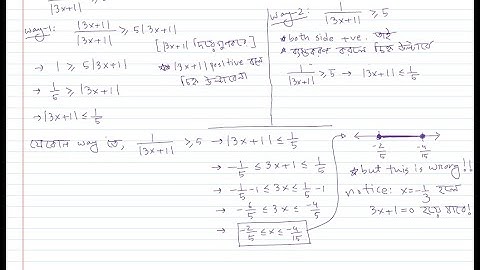 |3x+1|
way-1: |3x+1| / |3x+1| ≥ 5|3x+1|
[|3x+1| দিয়ে গুণ করে]
→ 1 ≥ 5|3x+1|
* |3x+1| positive বলে
চিহ্ন উল্টাবেনা
→ 1/5 ≥ |3x+1|
→ |3x+1| ≤ 1/5
way-2: 1/|3x+1| ≥ 5
* both side +ve.
* ব্যস্তকরণ করলে চিহ্ন উল্টাবে
1/|3x+1| ≥ 5 → |3x+1| ≤ 1/5
যেকোন way তে, 1/|3x+1| ≥ 5 → |3x+1| ≤ 1/5
→ -1/5 ≤ 3x+1 ≤ 1/5
→ -1/5 -1 ≤ 3x ≤ 1/5 -1
→ -6/5 ≤ 3x ≤ -4/5
→ -2/5 ≤ x ≤ -4/15
-2/5 -4/15
* but this is wrong!!
notice: x = -1/3 হলে
3x+1=0 হয়ে যাবে!